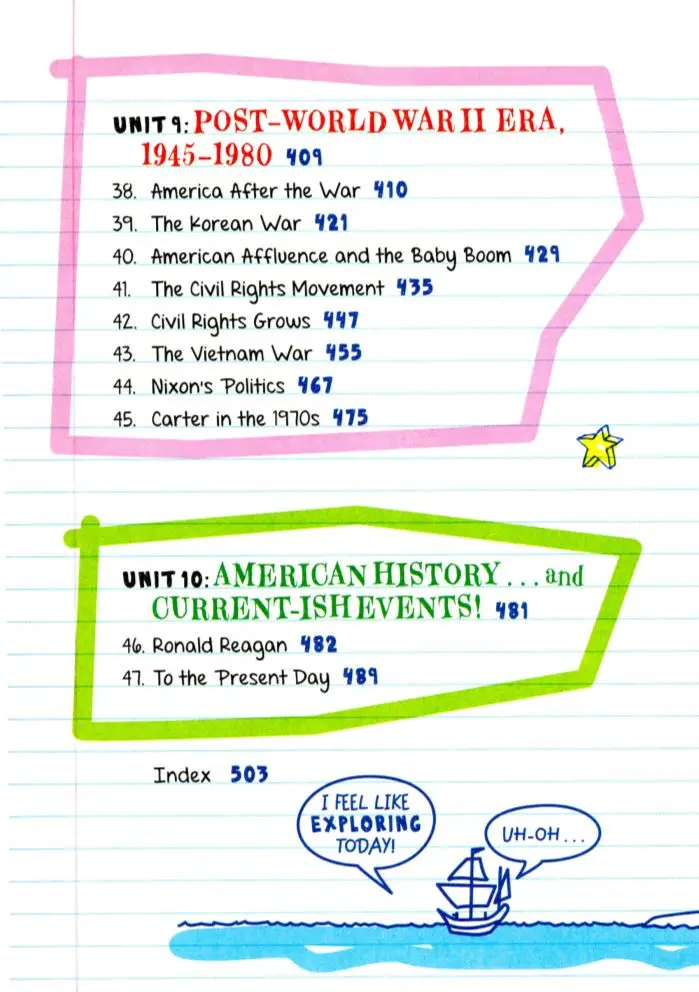 UNIT 9: POST–WORLD WAR II ERA,
1945–1980 409
38. America After the War 410
39. The Korean War 421
40. American Affluence and the Baby Boom 429
41. The Civil Rights Movement 435
42. Civil Rights Grows 447
43. The Vietnam War 455
44. Nixon's Politics 467
45. Carter in the 1970s 475
UNIT 10: AMERICAN HISTORY . . . and
CURRENT-ISH EVENTS! 481
46. Ronald Reagan 482
47. To the Present Day 489
Index 503
I FEEL LIKE
EXPLORING
TODAY!
UH-OH . . .